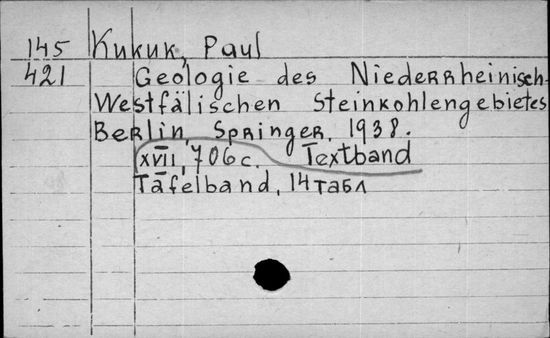 145 Kukuk, Paul
421 Geologie des Niederrheinisch-
Westfälischen Steinkohlengebietes
Berlin, Springer, 1938.
XVII, 706 с. Textband
Tafelband, 14 табл